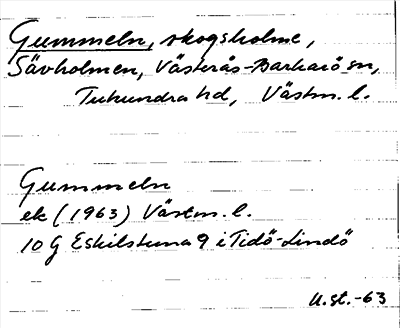 Gummeln, skogsholme,
Sävholmen, Västerås-Barkarö sn,
Tuhundra hd, Västm. l.
Gummeln
ek (1963) Västm. l.
10 G Eskilstuna 9 i Tidö-Lindö
U.st.-63